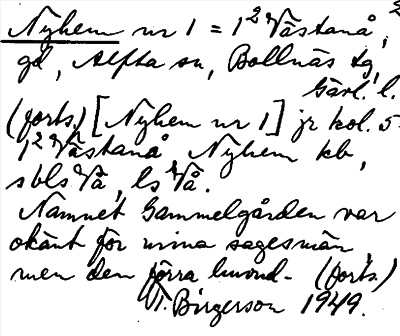 Nyhem nr 1 = 1² Västanå, 2
gd, Alfta sn, Bollnäs tg,
Gävl. l.
(forts.) [Nyhem nr 1] jr kol. 5.
1² Västanå Nyhem kb,
sbls Vå, ls Vå.
Namnet Gammelgården var
okänt för mina sagesmän
men den förra huvud- (forts.)
T. Birgerson 1949.